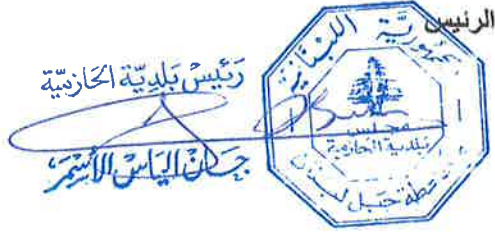 الرئيس
رئيس بلدية الحازمية
جان الياس الأسمر
الجمهورية اللبنانية
مجلس
بلدية الحازمية
محافظة جبل لبنان